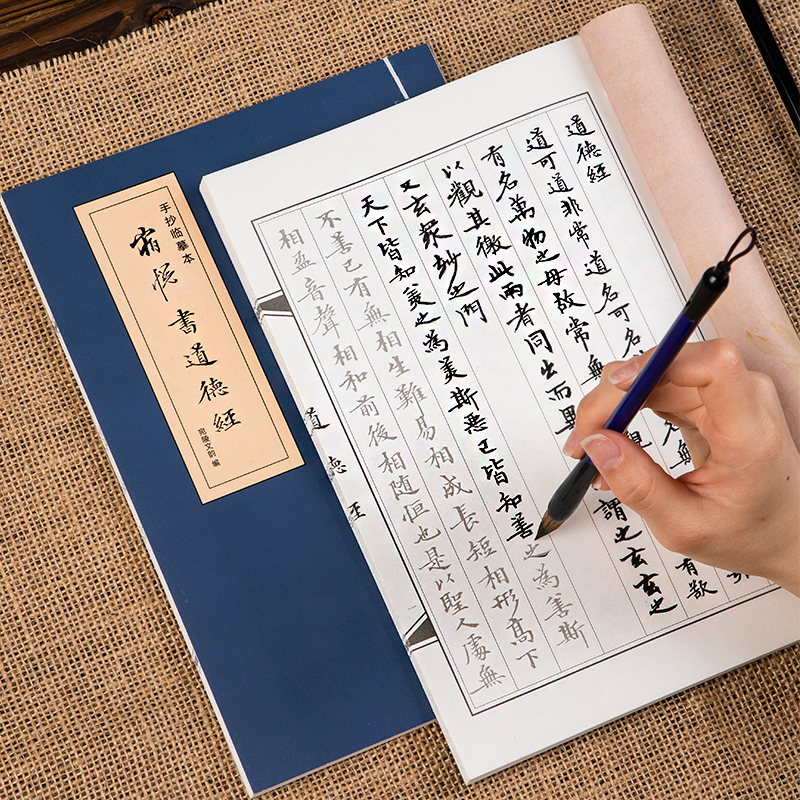 手抄临摹本
書道德經
宛陵文韵 编
道德經
道可道非常道名可名
有名萬物之母故常無
有欲
以觀其徼此兩者同出而異
謂之玄玄之
又玄眾妙之門
天下皆知美之為美斯惡已皆知善之為善斯
不善已有無相生難易相成長短相形高下
相盈音聲相和前後相隨恒也是以聖人處無
道德經